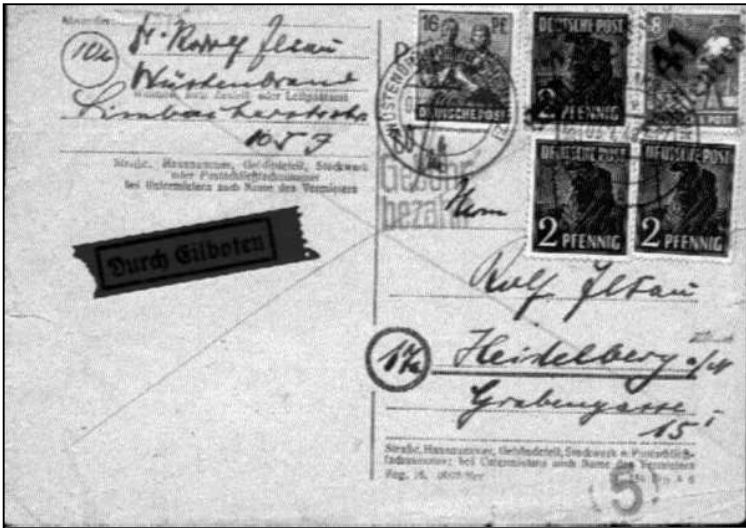 Absender:
10a
Dr. Rudolf Iltau
Wüstenbrand
Wohnort, auch Zustell- oder Leitpostamt
Straße, Hausnummer, Gebäudeteil, Stockwerk
oder Postschließfachnummer
bei Untermietern auch Name des Vermieters
Durch Eilboten
16
DEUTSCHE POST
DEUTSCHE POST
2 PFENNIG
8
41
DEUTSCHE POST
2 PFENNIG
DEUTSCHE POST
2 PFENNIG
WÜSTENBRAND
Gebühr
bezahlt
Herrn
Rolf Iltau
17a
Heidelberg a/N
Grabengasse
15 I
Straße, Hausnummer, Gebäudeteil, Stockwerk o. Postschließ-
fachnummer; bei Untermietern auch Name des Vermieters
5